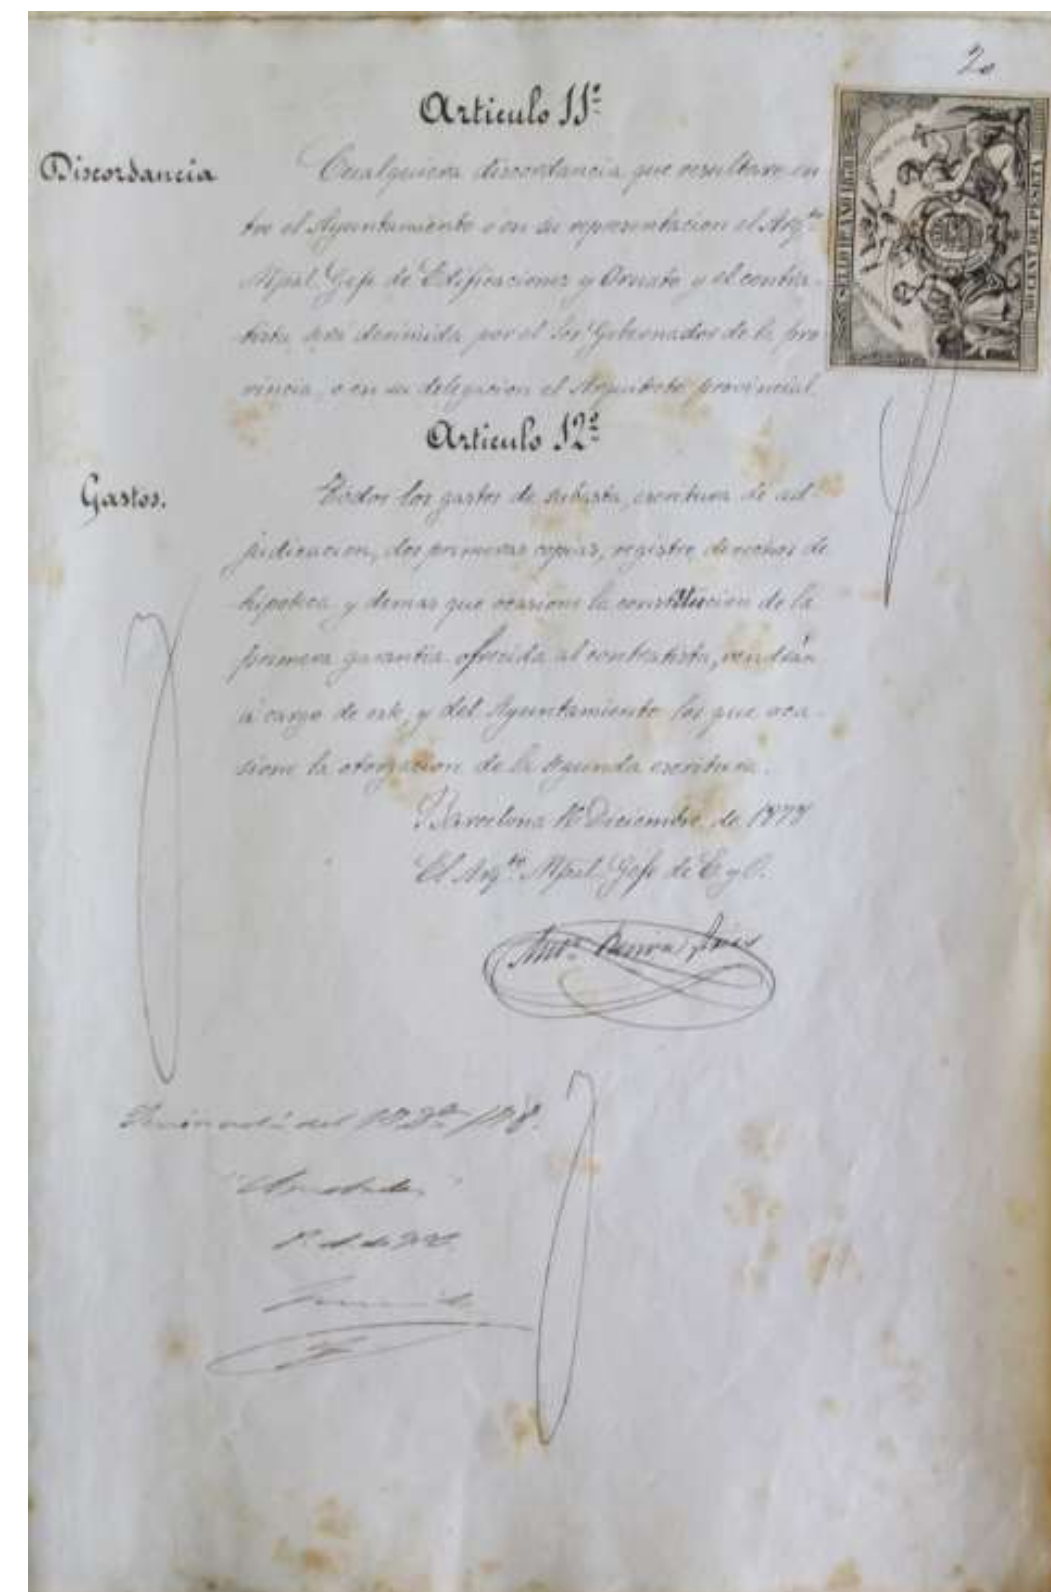 20
Articulo 11º
Discordancia
Cualquiera discordancia que resultare en
tre el Ayuntamiento o en su representacion el Arqto
Mpal Gefe de Edificaciones y Ornato y el contra-
tista, será dirimida por el Sor Gobernador de la pro
vincia, o en su delegacion el Arquitecto provincial.
Articulo 12º
Gastos.
Todos los gastos de subasta, escritura de ad
judicacion, dos primeras copias, registro, derechos de
hipoteca y demas que ocasione la constitucion de la
primera garantia ofrecida al contratista, vendrán
á cargo de este, y del Ayuntamiento los que oca-
sione la otorgacion de la segunda escritura.
Barcelona Diciembre de 187
El Arqto Mpal Gefe de E. y O.
Anto. Rovira
del
SELLO 11º AÑO 187
PESETA